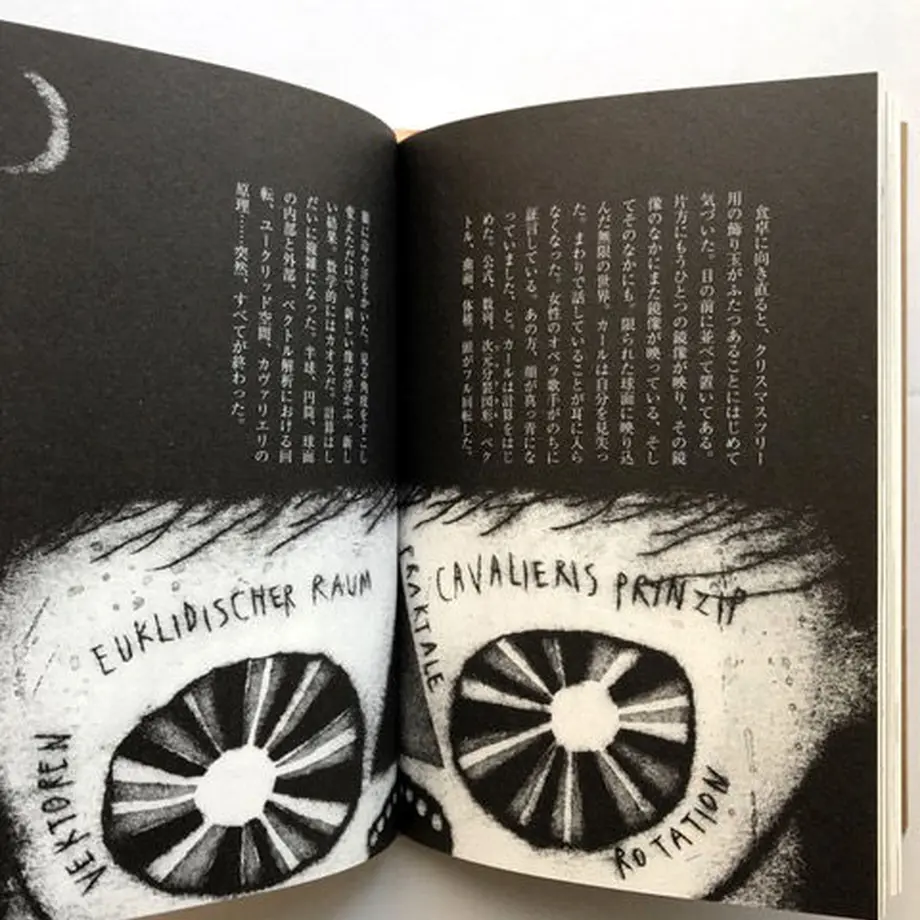 食卓に向き直ると、クリスマスツリー
用の飾り玉がふたつあることにはじめて
気づいた。目の前に並べて置いてある。
片方にもうひとつの鏡像が映り、その鏡
像のなかにまた鏡像が映っている、そし
てそのなかにも。限られた球面に映り込
んだ無限の世界。カールは自分を見失っ
た。まわりで話していることが耳に入ら
なくなった。女性のオペラ歌手がのちに
証言している。あの方、顔が真っ青にな
っていました、と。カールは計算をはじ
めた。公式、数列、次元分裂図形、ベク
トル、曲面、体積。頭がフル回転した。
額に冷や汗をかいた。見る角度をすこし
変えただけで、新しい像が浮かぶ。新し
い結果。数学的にはカオスだ。計算はし
だいに複雑になった。半球、円筒、球面
の内部と外部、ベクトル解析における回
転、ユークリッド空間、カヴァリエリの
原理……突然、すべてが終わった。
EUKLIDISCHER RAUM
VEKTOREN
FRAKTALE
CAVALIERIS PRINZIP
ROTATION